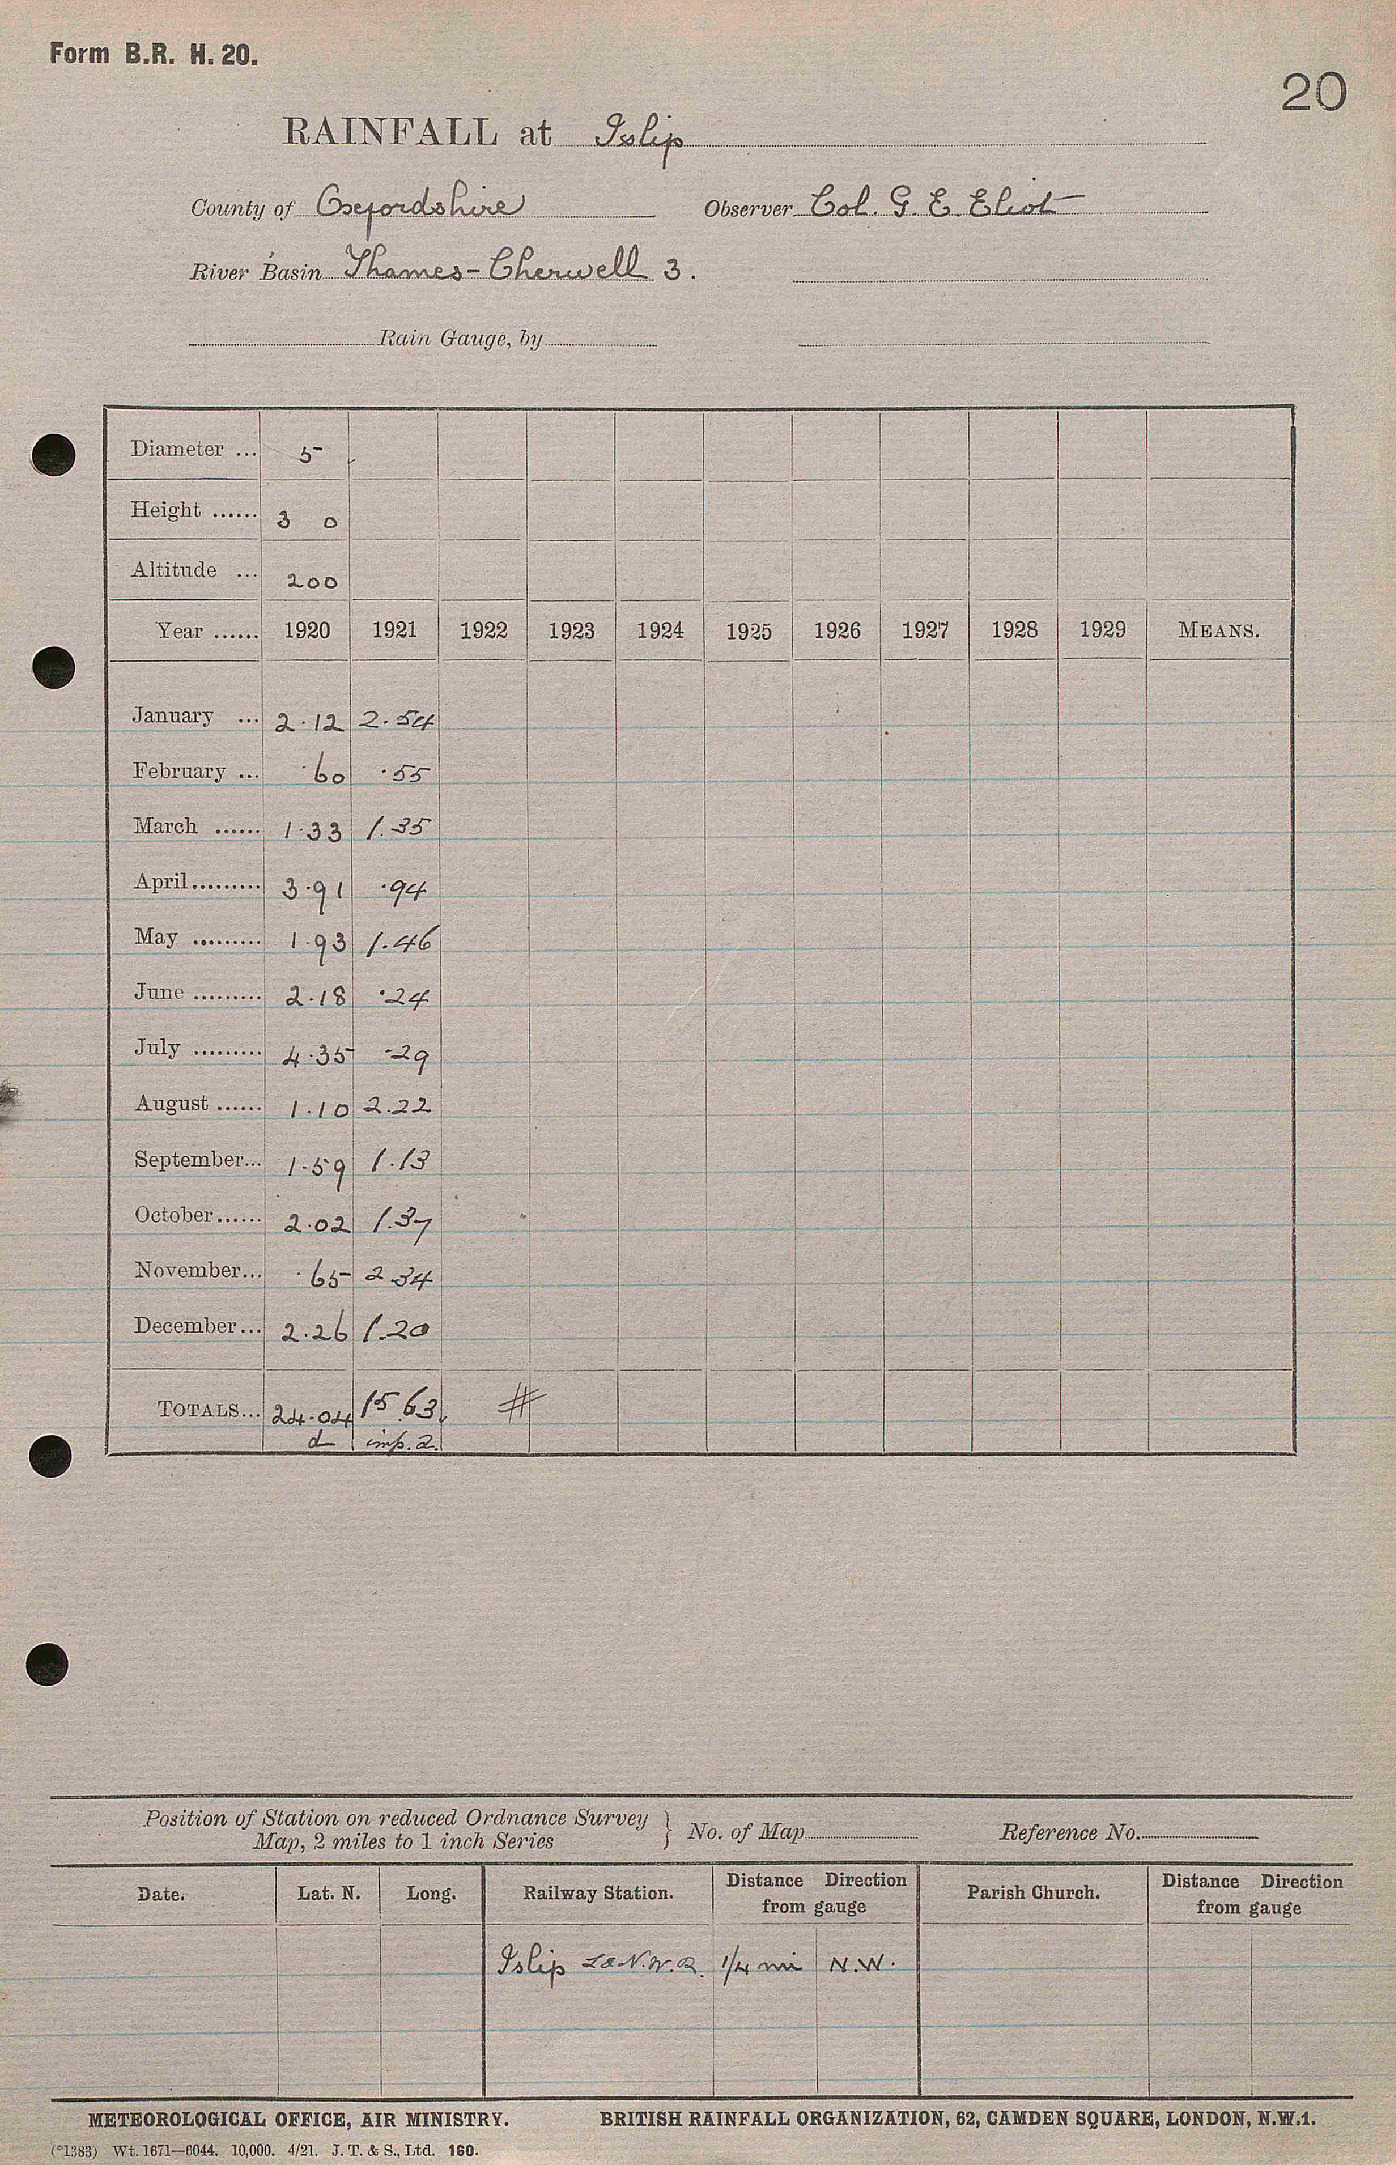 Form B.R. H. 20.
20
RAINFALL at Islip
County of Oxfordshire Observer Col. G. E. Eliot
River Basin Thames-Cherwell 3.
Rain Gauge, by
Diameter ... 5
Height ...... 3 0
Altitude ... 200
Year ...... 1920 1921 1922 1923 1924 1925 1926 1927 1928 1929 MEANS.
January ... 2.12 2.54
February ... .60 .55
March ...... 1.33 1.35
April ......... 3.91 .94
May ......... 1.93 1.46
June ......... 2.18 .24
July ......... 4.35 .29
August ...... 1.10 2.22
September... 1.59 1.13
October...... 2.02 1.37
November... .65 2 34
December... 2.26 1.20
TOTALS... 24.04 15.63 #
d imp. 2.
Position of Station on reduced Ordnance Survey
Map, 2 miles to 1 inch Series } No. of Map Reference No.
Date. Lat. N. Long. Railway Station. Distance Direction from gauge Parish Church. Distance Direction from gauge
Islip L&N.W.R. 1/4 mi N.W.
METEOROLOGICAL OFFICE, AIR MINISTRY. BRITISH RAINFALL ORGANIZATION, 62, CAMDEN SQUARE, LONDON, N.W.1.
(*1383) Wt. 1671—6044. 10,000. 4/21. J. T. & S., Ltd. 160.